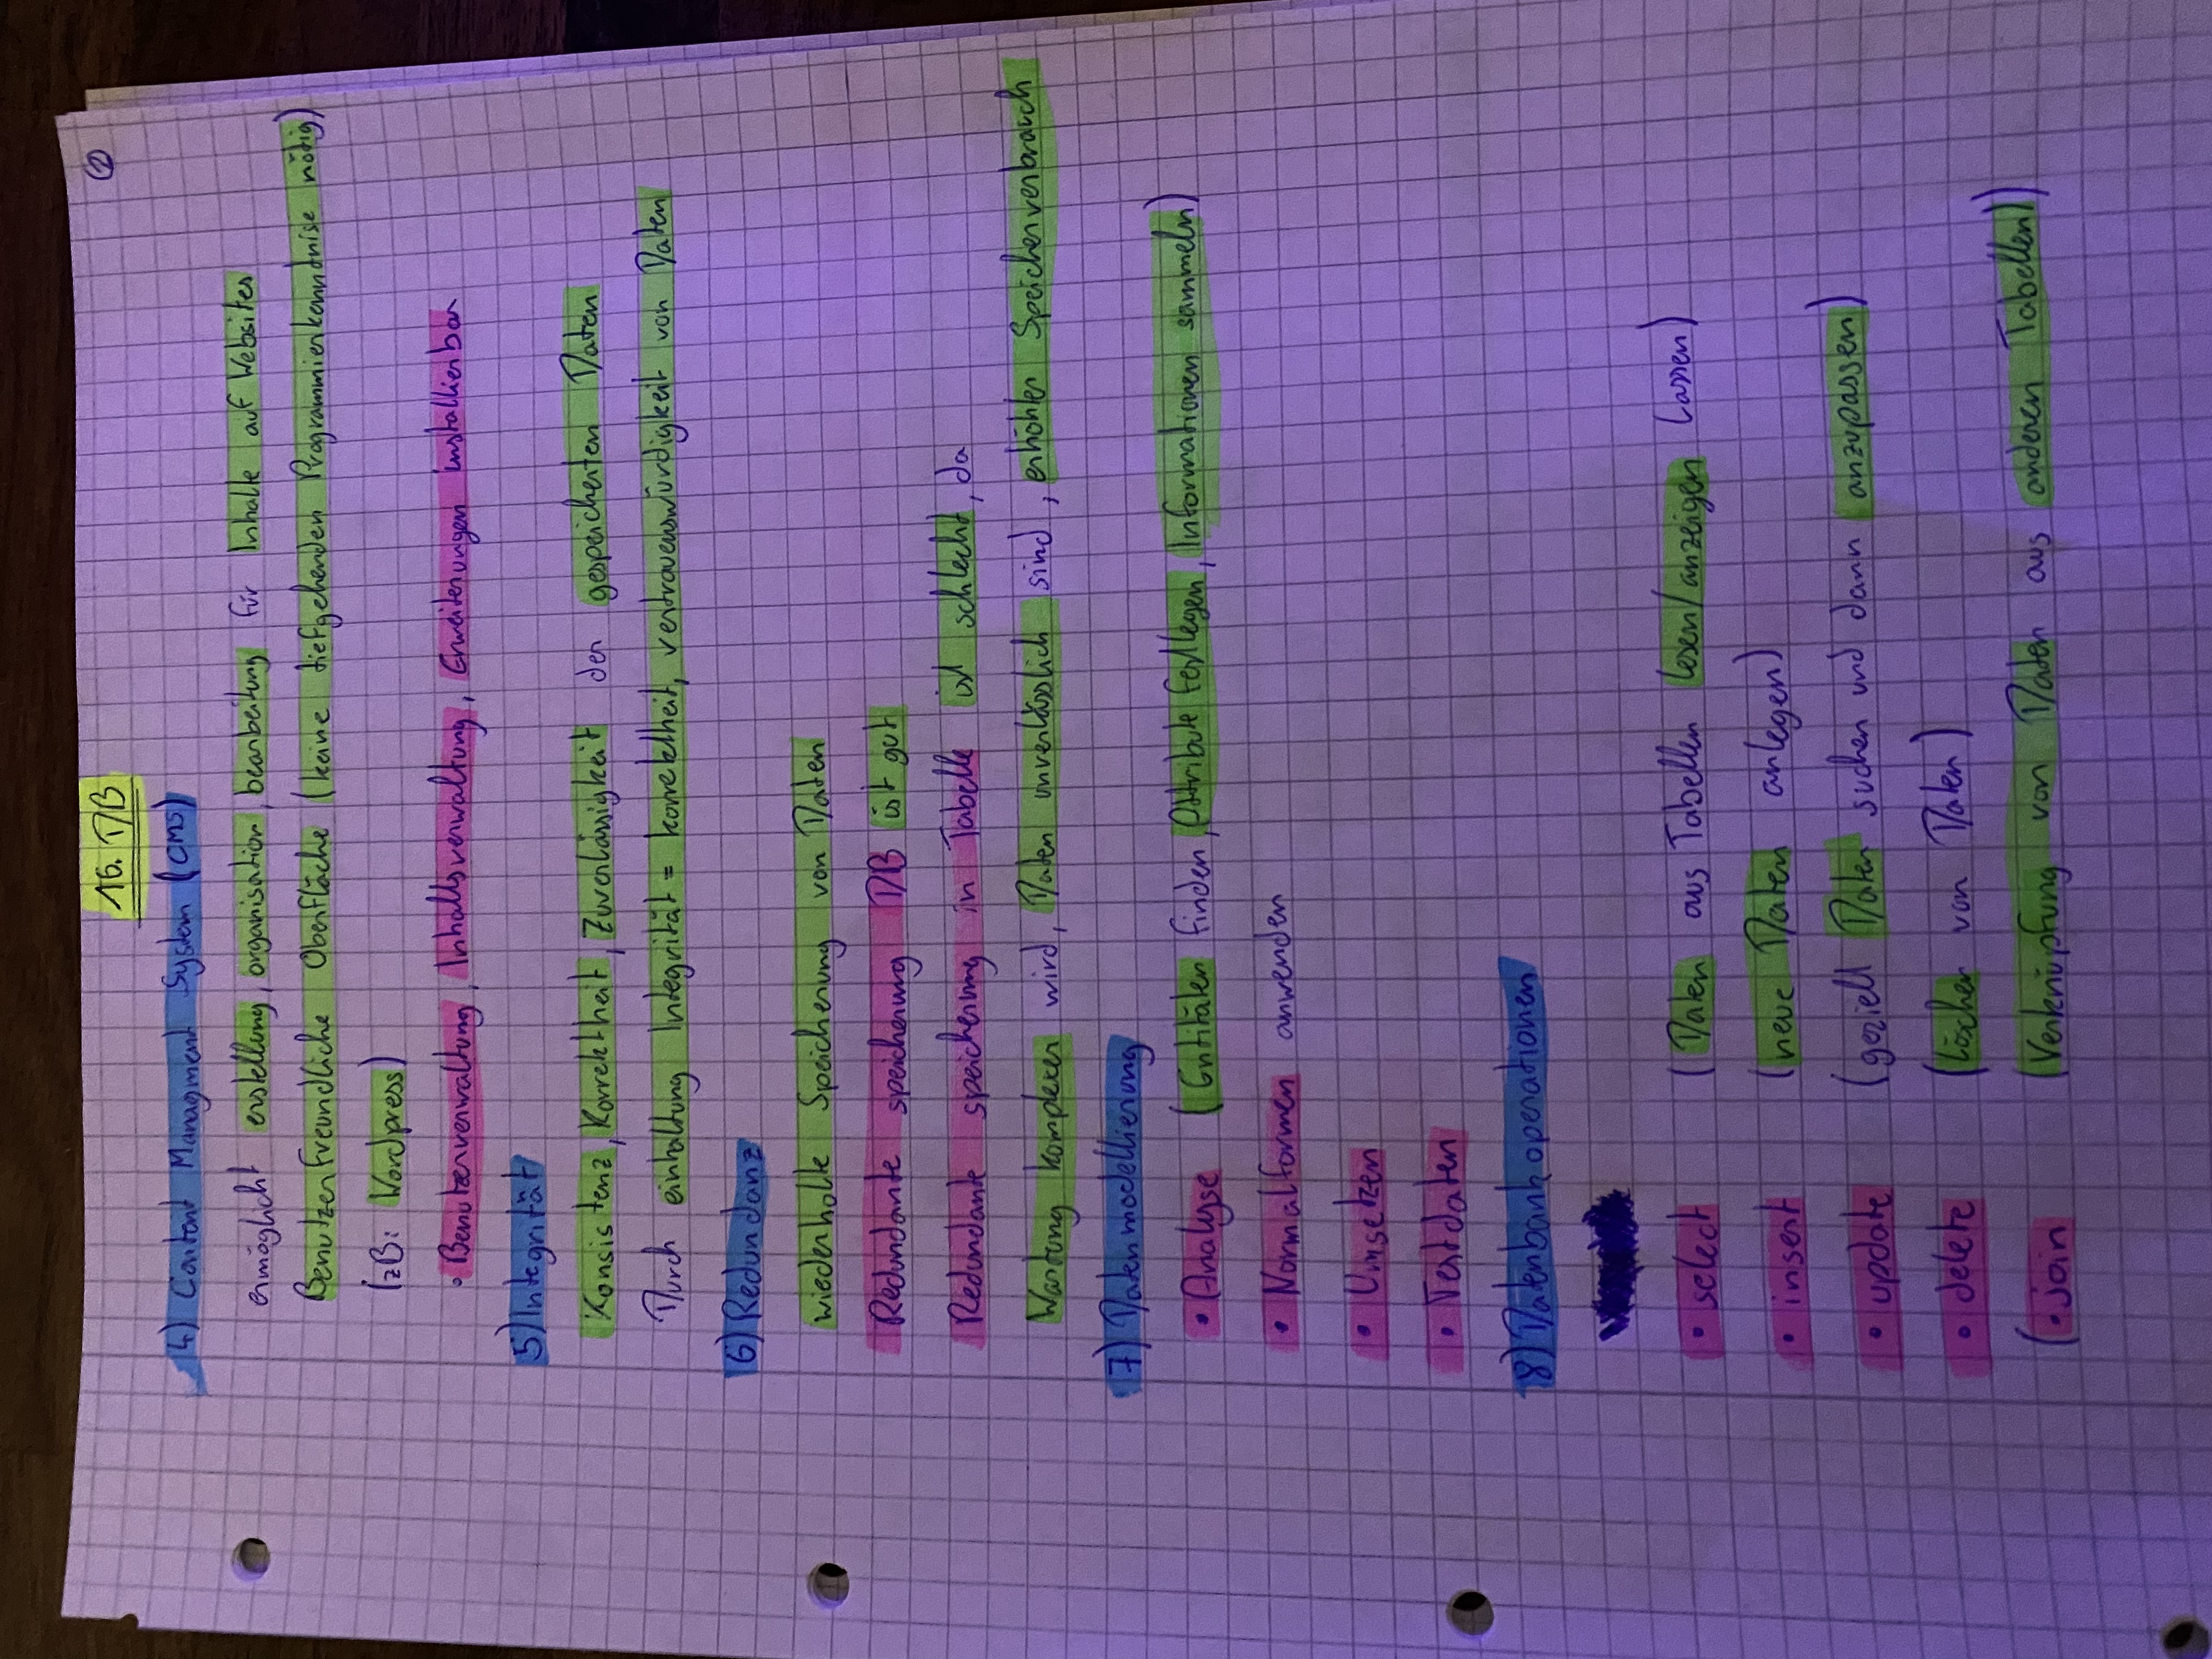 16. DB
2
4) Content Managment System (CMS)
ermöglicht erstellung, organisation, bearbeitung für Inhalte auf Websites
Benutzerfreundliche Oberfläche (keine tiefgehenden Programmierkenntnise nötig)
(zB: Wordpress)
• Benutzerverwaltung, Inhaltsverwaltung, Erweiterungen installierbar
5) Integrität
Konsistenz, Korrektheit, Zuverlässigkeit der gespeicherten Daten
Durch einhaltung Integrität = korrektheit, vertrauenswürdigkeit von Daten
6) Redundanz
wiederholte Speicherung von Daten
Redundante speicherung DB ist gut
Redundante speicherung in Tabelle ist schlecht, da
Wartung komplexer wird, Daten unverlässlich sind, erhöhter Speicherverbrauch
7) Datenmodellierung
• Analyse (Entitäten finden, Attribute festlegen, Informationen sammeln)
• Normalformen anwenden
• Umsetzen
• Testdaten
8) Datenbankoperationen
• select (Daten aus Tabellen lesen/anzeigen lassen)
• insert (neue Daten anlegen)
• update (geziell Daten suchen und dann anzupassen)
• delete (löschen von Daten)
(• join (Verknüpfung von Daten aus anderen Tabellen))